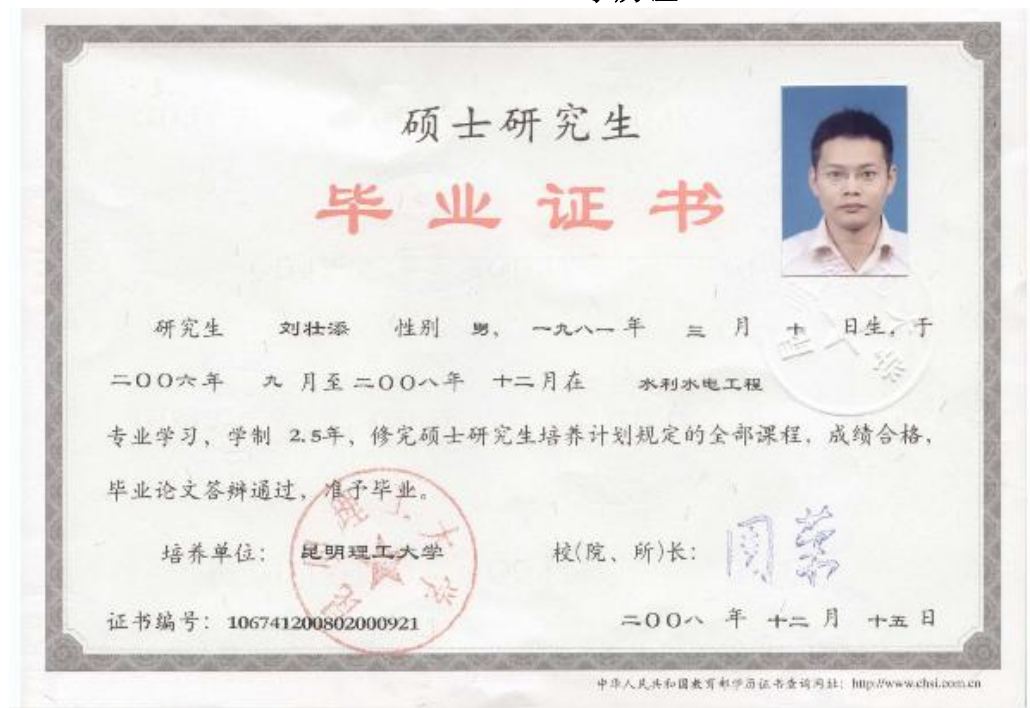 硕士研究生
毕业证书
研究生 刘壮添 性别 男、 一九八一 年 三 月 十 日生，于
二〇〇六年 九 月至二〇〇八年 十二月在 水利水电工程
专业学习，学制 2.5年，修完硕士研究生培养计划规定的全部课程，成绩合格，
毕业论文答辩通过，准予毕业。
培养单位： 昆明理工大学 校(院、所)长： 周荣
证书编号：106741200802000921 二〇〇八 年 十二 月 十五 日
中华人民共和国教育部学历证书查询网址：http://www.chsi.com.cn